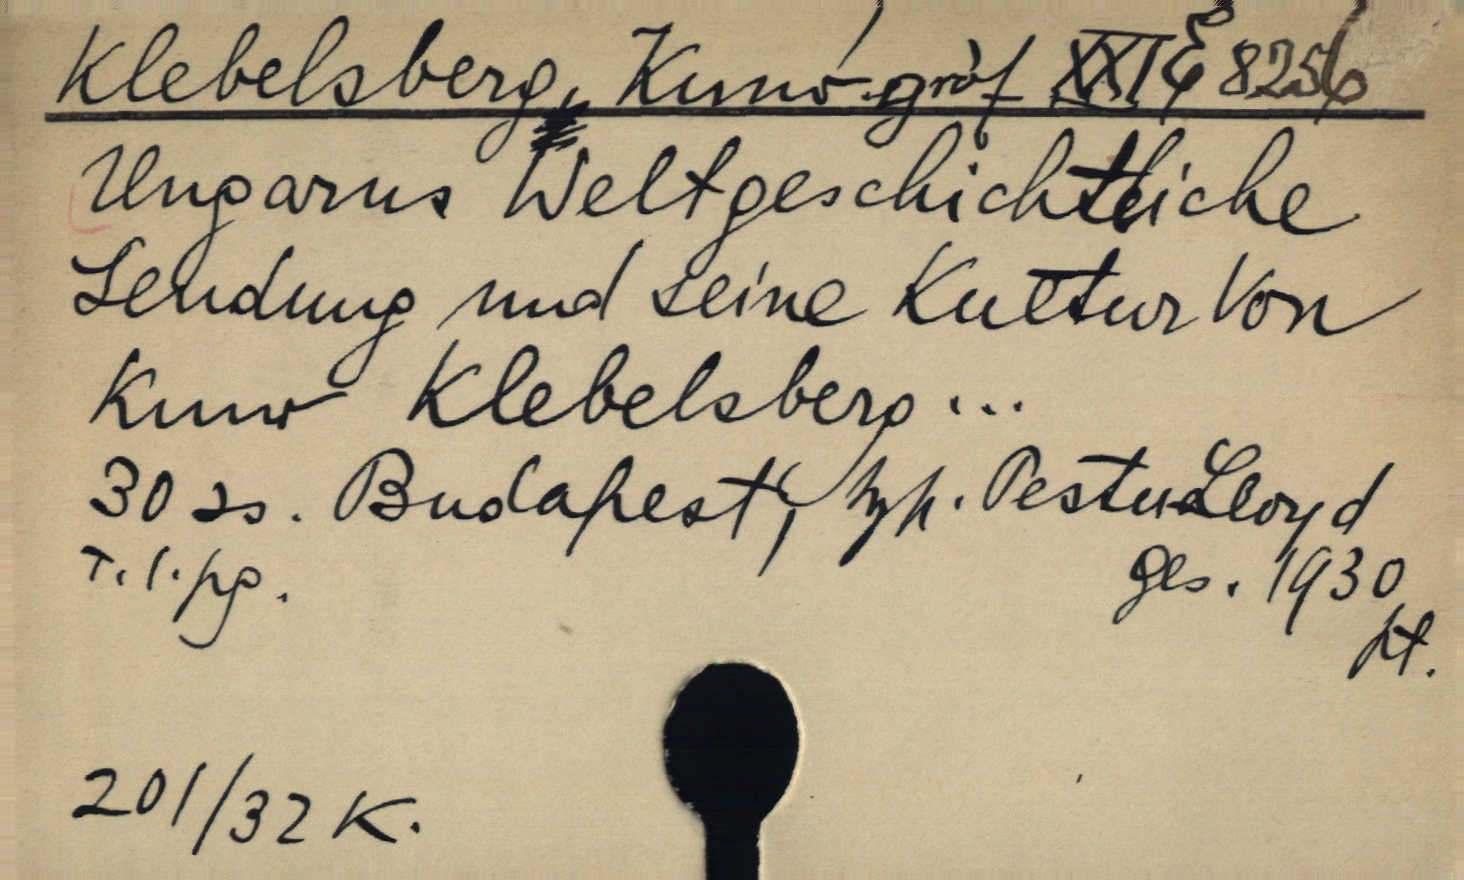 Klebelsberg, Kunó gróf XXI E 8256
Ungarns Weltgeschichtliche
Sendung und seine Kultur Von
Kuno Klebelsberg ...
30 2s. Budapest, typ. Pester Lloyd
T. l. pg. ges. 1930
201/32 K.